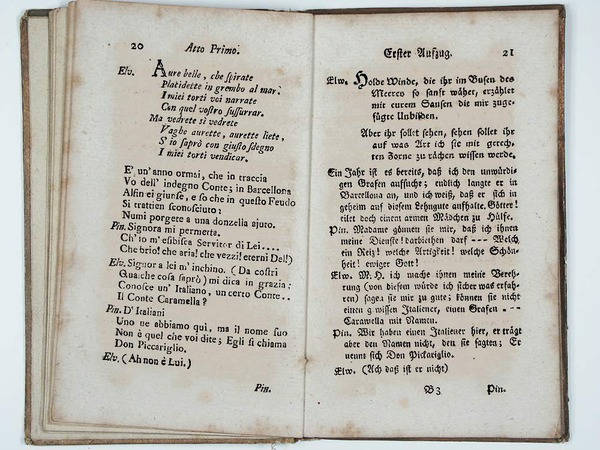 20 Atto Primo.
Elv. Aure belle, che spirate
Platidette in grembo al mar;
I miei torti voi narrate
Con quel vostro sussurrar.
Ma vedrete sì vedrete
Vaghe aurette, aurette liete,
S' io saprò con giusto sdegno
I miei torti vendicar.
E' un' anno ormsi, che in traccia
Vo dell' indegno Conte; in Barcellona
Alfin ei giunse, e so che in questo Feudo
Si trattien sconosciuto;
Numi porgete a una donzella ajuto.
Pin. Signora mi permetta.
Ch' io m' esibisca Servitor di Lei....
Che brio! che aria! che vezzi! eterni Dei!)
Elv. Signor a lei m' inchino. (Da costri
Qualche cosa saprò) mi dica in grazia:
Conosce un' Italiano, un certo Conte..
Il Conte Caramella?
Pin. D' Italiani
Uno ne abbiamo quì, ma il nome suo
Non è quel che voi dite; Egli si chiama
Don Piccariglio.
Elv. (Ah non è Lui.)
Pin.
Erster Aufzug. 21
Elw. Holde Winde, die ihr im Busen des
Meeres so sanft wäher, erzähler
mit eurem Sausen die mir zuge-
fügte Unbilden.
Aber ihr sollet sehen, sehen sollet ihr
auf was Art ich sie mit gerech-
ten Zorne zu rächen wissen werde.
Ein Jahr ist es bereits, daß ich den unwürdi-
gen Grafen aufsuche; endlich langte er in
Barcellona an, und ich weiß, daß er sich in
geheim auf diesem Lehngute aufhalte. Götter!
eilet doch einem armen Mädchen zu Hülfe.
Pin. Madame gönnen sie mir, daß ich ihnen
meine Dienste! darbiethen darf --- Welch
ein Reiz! welche Artigkeit! welche Schön-
heit! ewiger Gott!
Elw. M. H. ich mache ihnen meine Vereh-
rung (von diesem würde ich sicher was erfah-
ren) sagen sie mir zu gute; können sie nicht
einen gewissen Italiener, einen Grafen . --
Carawella mit Namen.
Pin. Wir haben einen Italiener hier, er trägt
aber den Namen nicht, den sie sagten; Er
nennt sich Don Pickariglio.
Elw. (Ach daß ist er nicht)
B3 Pin.